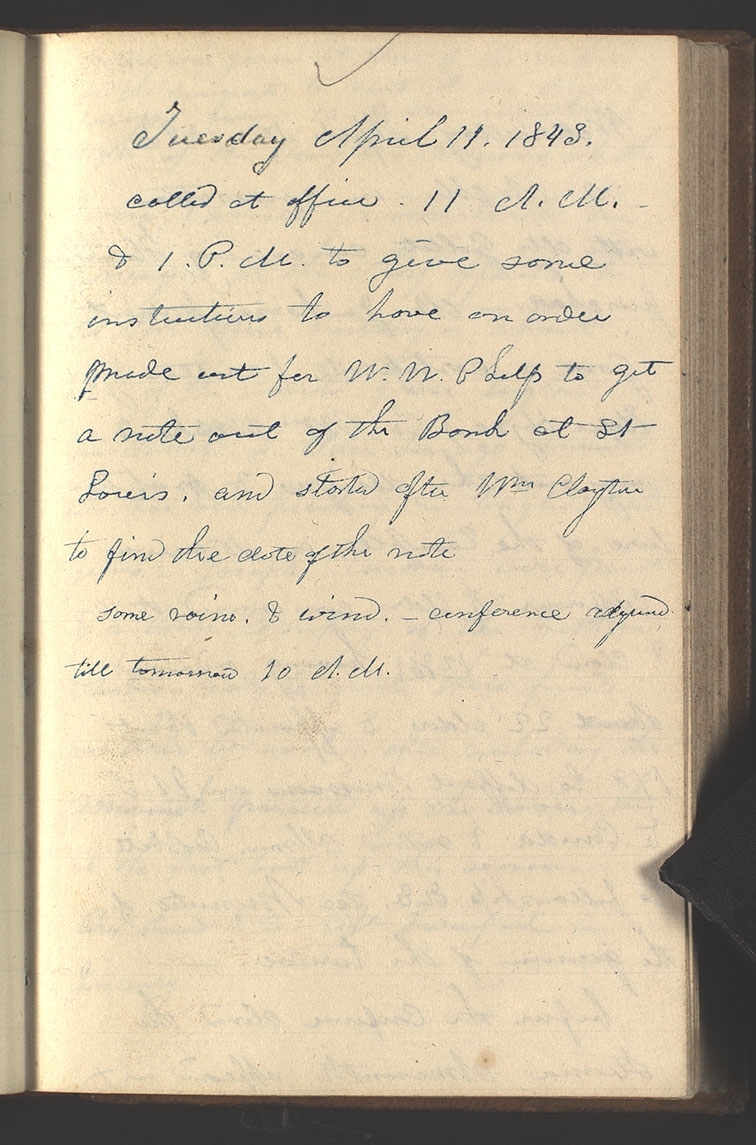 Tuesday April 11. 1843.
called at office. 11 A.M. -
& 1. P.M. to give some
instructions to have an order
made out for W. W. Phelps to get
a note out of the Bank at St
Louis. and started after Wm Clayton
to find the date of the note
some rain. & wind. - conference adjourned
till tomorrow 10 A.M.